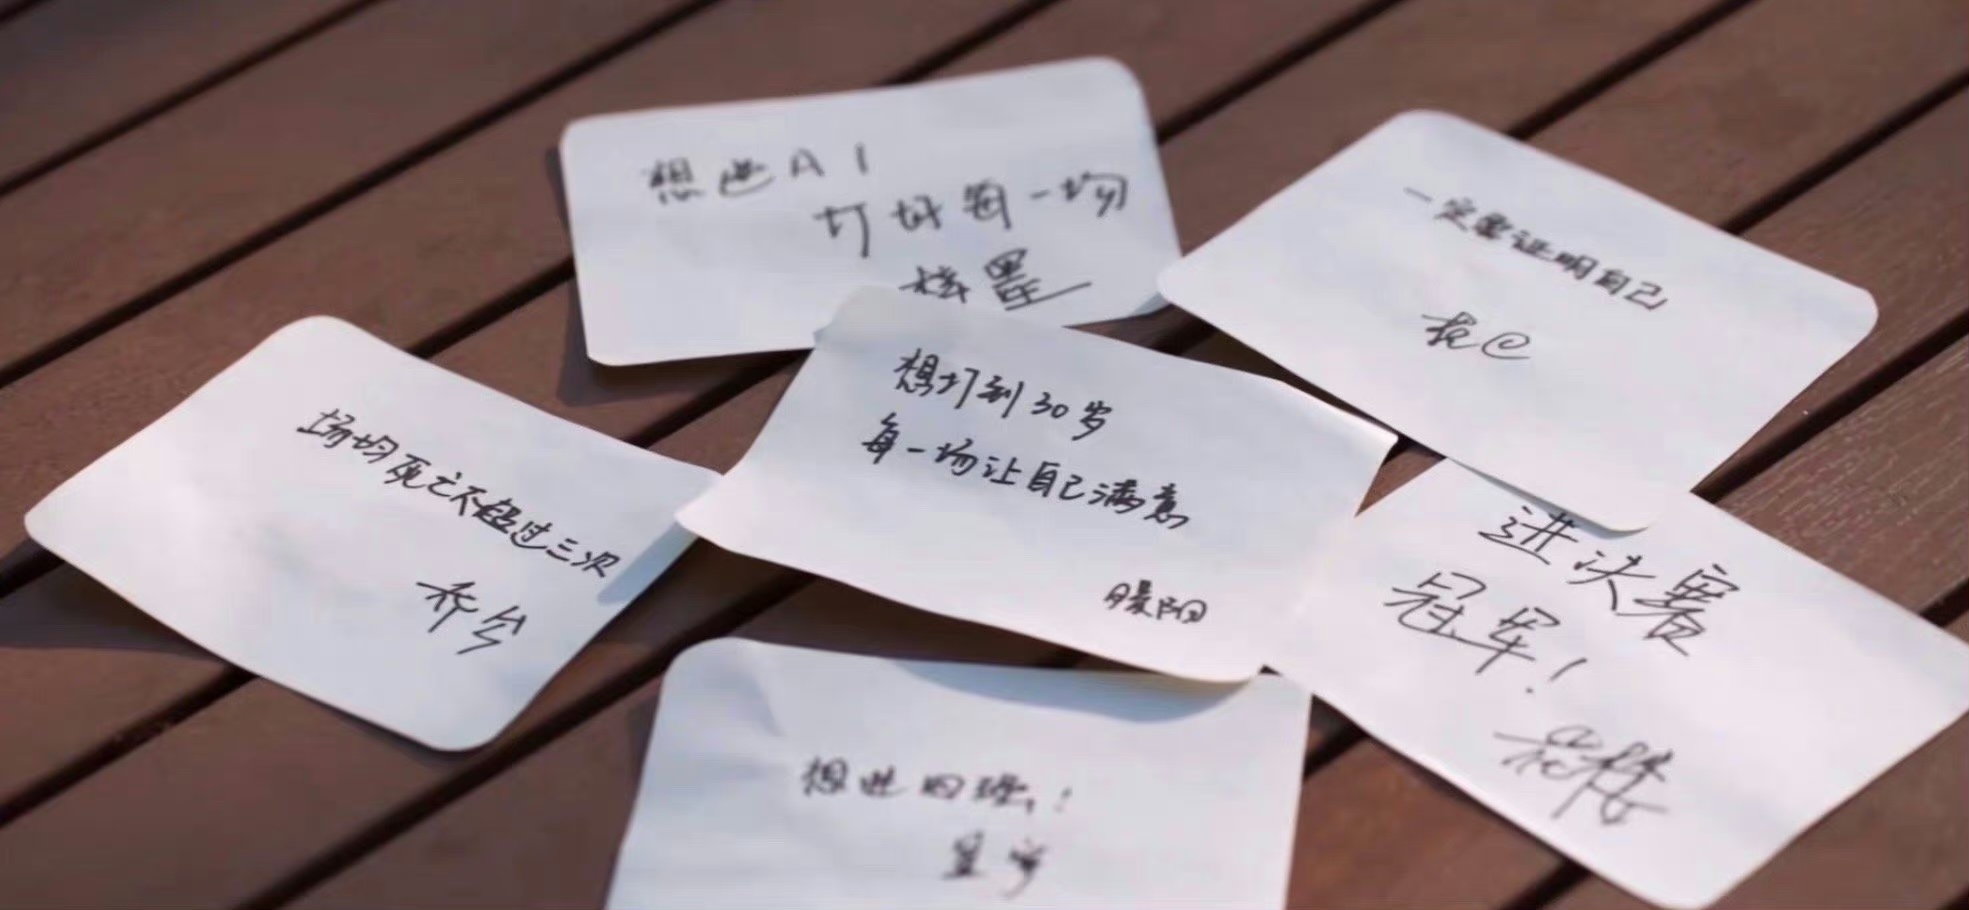 想进A1
打好每一场
一定要证明自己
想打到30岁
每一场让自己满意
曦阳
场均死亡不超过三次
乔兮
进决赛
冠军!
花楼
想进四强!
星宇